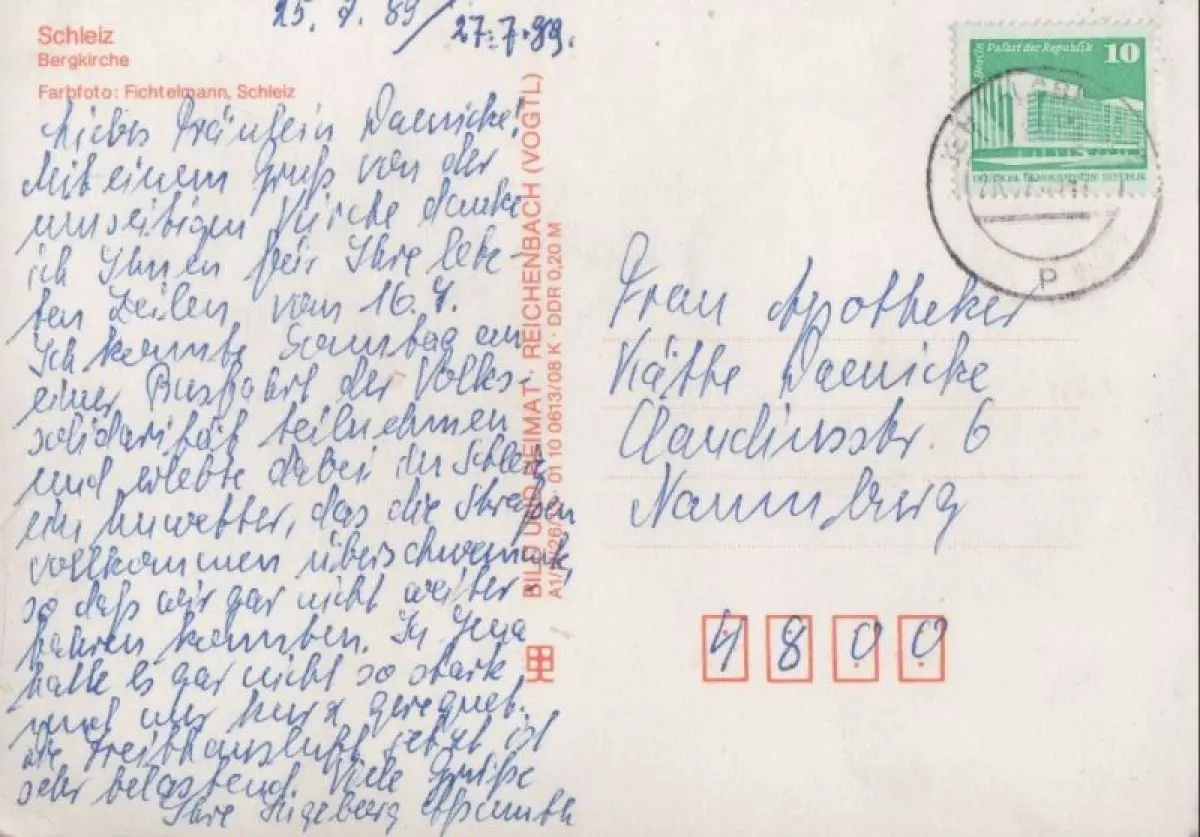 25. 7. 89 / 27.7.89.
Schleiz
Bergkirche
Farbfoto: Fichtelmann, Schleiz
Liebes Fräulein Daenicke!
Mit einem Gruß von der
umseitigen Kirche danke
ich Ihnen für Ihre liebe-
ten Zeilen vom 16.7.
Ich konnte Sonntag an
einer Busfahrt der Volks-
solidarität teilnehmen
und erlebte dabei in Schleiz
ein Unwetter, das die Straßen
vollkommen überschwemmte,
so daß wir gar nicht weiter-
fahren konnten. In Jena
hatte es gar nicht so stark
und nur kurz geregnet.
Die Treibhausluft jetzt ist
sehr belastend. Viele Grüße
Ihre Ingeborg
BILD UND HEIMAT · REICHENBACH (VOGTL)
01 10 0613/08 K · DDR 0,20 M
Berlin Palast der Republik 10
DEUTSCHE DEMOKRATISCHE REPUBLIK
p
Frau Apotheker
Käthe Daenicke
Claudiusstr. 6
Naumburg
4800